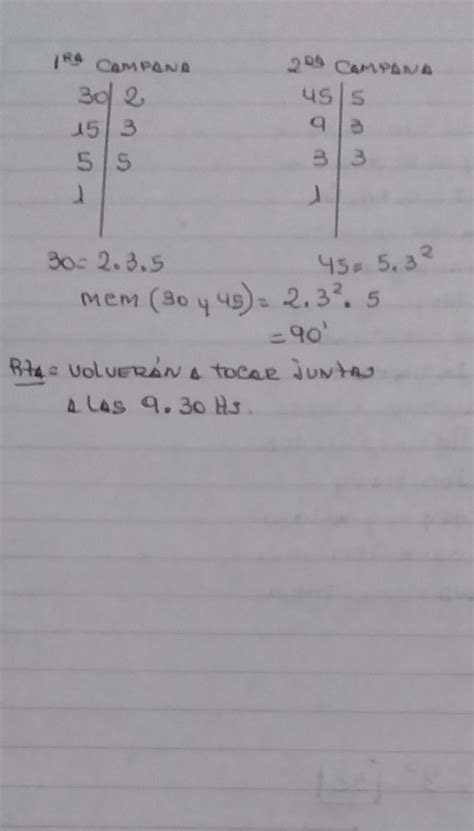 1RA CAMPANA 2DA CAMPANA
30 | 2 45 | 5
15 | 3 9 | 3
5 | 5 3 | 3
1 | 1 |
30 = 2.3.5 45 = 5.3²
mcm (30 y 45) = 2.3².5
= 90'
RTA = VOLVERÁN A TOCAR JUNTAS
A LAS 9.30 HS.